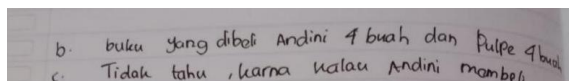 b. buku yang dibeli Andini 4 buah dan Pulpe 4 buah
c. Tidak tahu, karna kalau Andini membeli